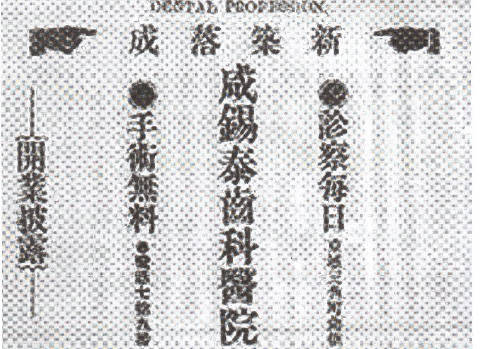 DENTAL PROFESSION.
新築落成
診察毎日
咸錫泰齒科醫院
手術無料
開業披露